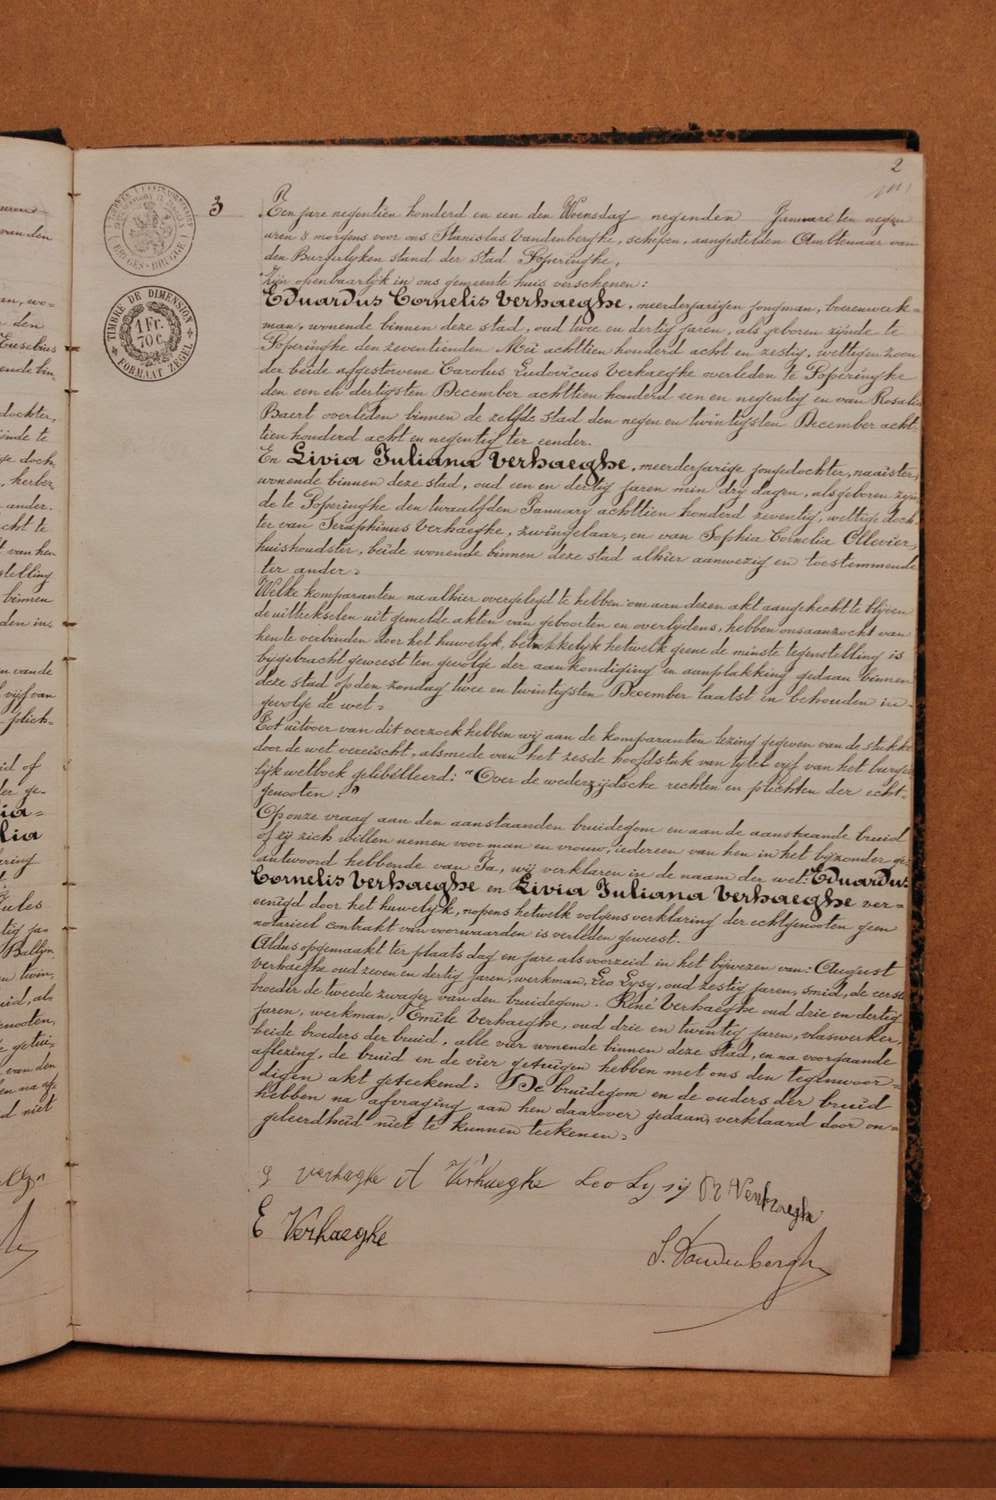 2
3
Een jare negentien honderd en een den Woensdag negenden Januari ten negen
uren 8 morgens voor ons Stanislas Vandenberghe, schepen, aangestelden Ambtenaar van
den Burgerlyken stand der stad Poperinghe,
Zijn openbaarlijk in ons gemeente huis verschenen:
Eduardus Cornelis Verhaeghe, meerderjarigen jongman, boerenwerk-
man, wonende binnen deze stad, oud twee en dertig jaren, als geboren zijnde te
Poperinghe den zeventienden Mei achttien honderd acht en zestig, wettigen zoon
der beide afgestorvene Carolus Ludovicus Verhaeghe overleden te Poperinghe
den een en dertigsten December achttien honderd een en negentig en van Rosalie
Baert overleden binnen de zelfde stad den negen en twintigsten December acht-
tien honderd acht en negentig ter eender.
En Livia Juliana Verhaeghe, meerderjarige jongedochter, naaister,
wonende binnen deze stad, oud een en dertig jaren min dry dagen, als geboren zijn
de te Poperinghe den twaalfden January achttien honderd zeventig, wettige doch
ter van Seraphinus Verhaeghe, zwingelaar, en van Sophia Cornelia Ollevier,
huishoudster, beide wonende binnen deze stad alhier aanwezig en toestemmende
ter ander.
Welke komparanten na alhier overgelegd te hebben om aan dezen akt aangehecht te blijven
de uittreksels uit gemelde akten van geboorten en overlijdens, hebben ons aanzocht van
hen te verbinden door het huwelyk, betrekkelyk hetwelk geene de minste tegenstelling is
bijgebracht geweest ten gevolge der aankondiging en aanplakking gedaan binnen
deze stad op den zondag twee en twintigsten December laatst en behouden in
gevolge de wet.
Tot uitvoer van dit verzoek hebben wij aan de komparanten lezing gegeven van de stukken
door de wet vereischt, alsmede van het zesde hoofdstuk van tytel vyf van het burger
lijk wetboek gelibelleerd: "Over de wederzijdsche rechten en plichten der echt-
genooten."
Op onze vraag aan den aanstaanden bruidegom en aan de aanstaande bruid
of zij zich willen nemen voor man en vrouw, iedereen van hen in het bijzonder ge-
antwoord hebbende van Ja, wij verklaren in de naam der wet: Eduardus
Cornelis Verhaeghe en Livia Juliana Verhaeghe ver-
eenigd door het huwelyk, nopens hetwelk volgens verklaring der echtgenooten geen
notarieel contrakt van voorwaarden is verleden geweest.
Aldus opgemaakt ter plaats dag en jare als voorzeid in het bijwezen van: August
Verhaeghe oud zeven en dertig jaren, werkman, Leo Lysy, oud zestig jaren, smid, de eerste
broeder de tweede zwager van den bruidegom. René Verhaeghe oud drie en dertig
jaren, werkman, Emile Verhaeghe, oud drie en twintig jaren, vlaswerker,
beide broeders der bruid, alle vier wonende binnen deze stad, en na voorgaande
aflezing, de bruid en de vier getuigen hebben met ons den tegenwoor-
digen akt geteekend. De bruidegom en de ouders der bruid
hebben na afvraging aan hen daarover gedaan, verklaard door on-
geleerdheid niet te kunnen teekenen.
verhaeghe A Verhaeghe Leo Lysy R Verhaeghe
E Verhaeghe
S. Vandenbergh
TIMBRE DE DIMENSION
1 Fr.
70 c.
FORMAAT ZEGEL
BRUGES-BRUGGE